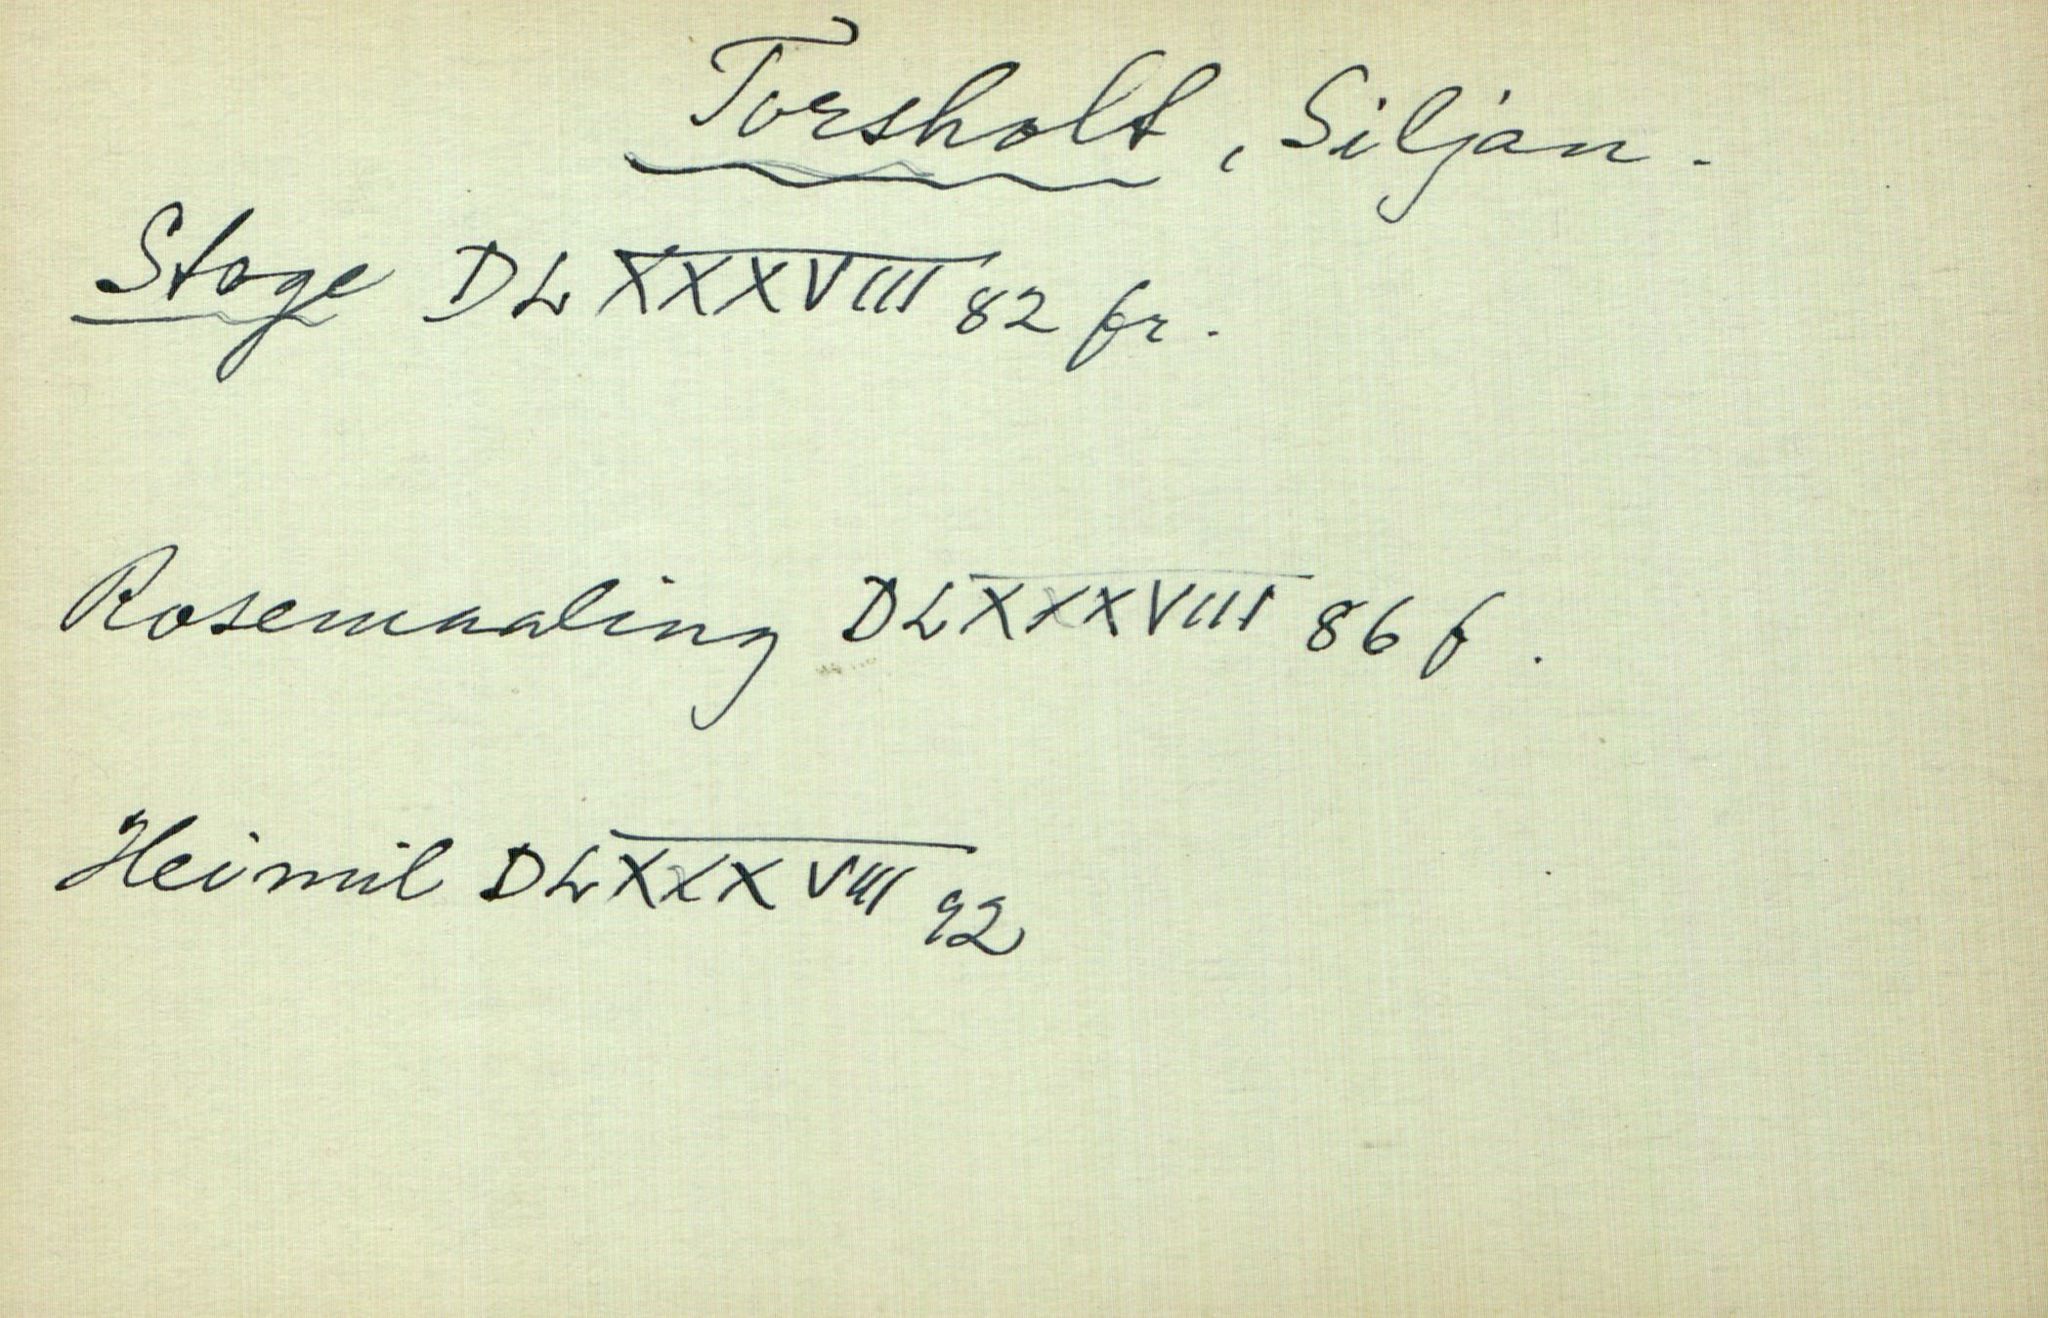 Torsholt, Siljan.
Stoge DLXXXVIII 82 fr.
Rosemaaling DLXXXVIII 86 f.
Heimil DLXXXVIII 92